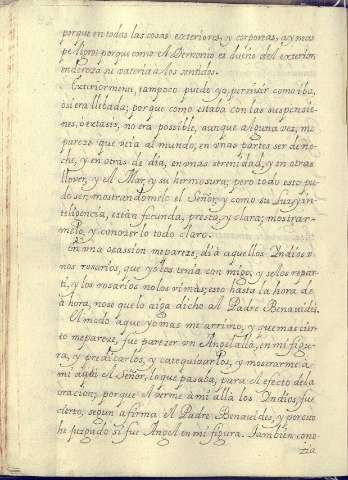 porque en todas las cosas exteriores, y corporeas, ay mas
peligro; porque como el Demonio es dueño del exterior,
endereza su vateria a los sentidos.
Exteriormente, tampoco puede yo, persivir como iba,
o si era llebada; porque como estaba con las suspensio-
nes, o extasis, no era possible, aunque alguna vez, me
pareze que vía al mundo, en unas partes ser de no-
che, y en otras de día, en unas serenidad, y en otras
llover, y el Mar, y su hermosura; pero todo esto pu-
do ser, mostrandomelo el Señor; y como su Luz, y in-
teligencia, es tan fecunda, presta, y clara; mostrar-
melo, y conocerlo todo claro.
En una ocassion me pareze, dí a aquellos Yndios u-
nos rosarios, que yo los tenia con migo, y se los repar-
ti, y los rosarios no los ví mas; esto hasta la hora de
a hora, no se que lo aiga dicho al Padre Benavides.
El modo a que yo mas me arrimo, y que mas cier-
to me pareze, fue parezer un Angel allá, en mi figu-
ra, y predicarlos, y catequizarlos, y mostrarme a
mi aqui el Señor, lo que pasaba, para el efecto de la
oracion; porque el verme a mi alla los Yndios, fue
cierto, segun afirma el Padre Benavides, y por esso
he juzgado si fue Angel en mi figura. Tambien cono-
zia